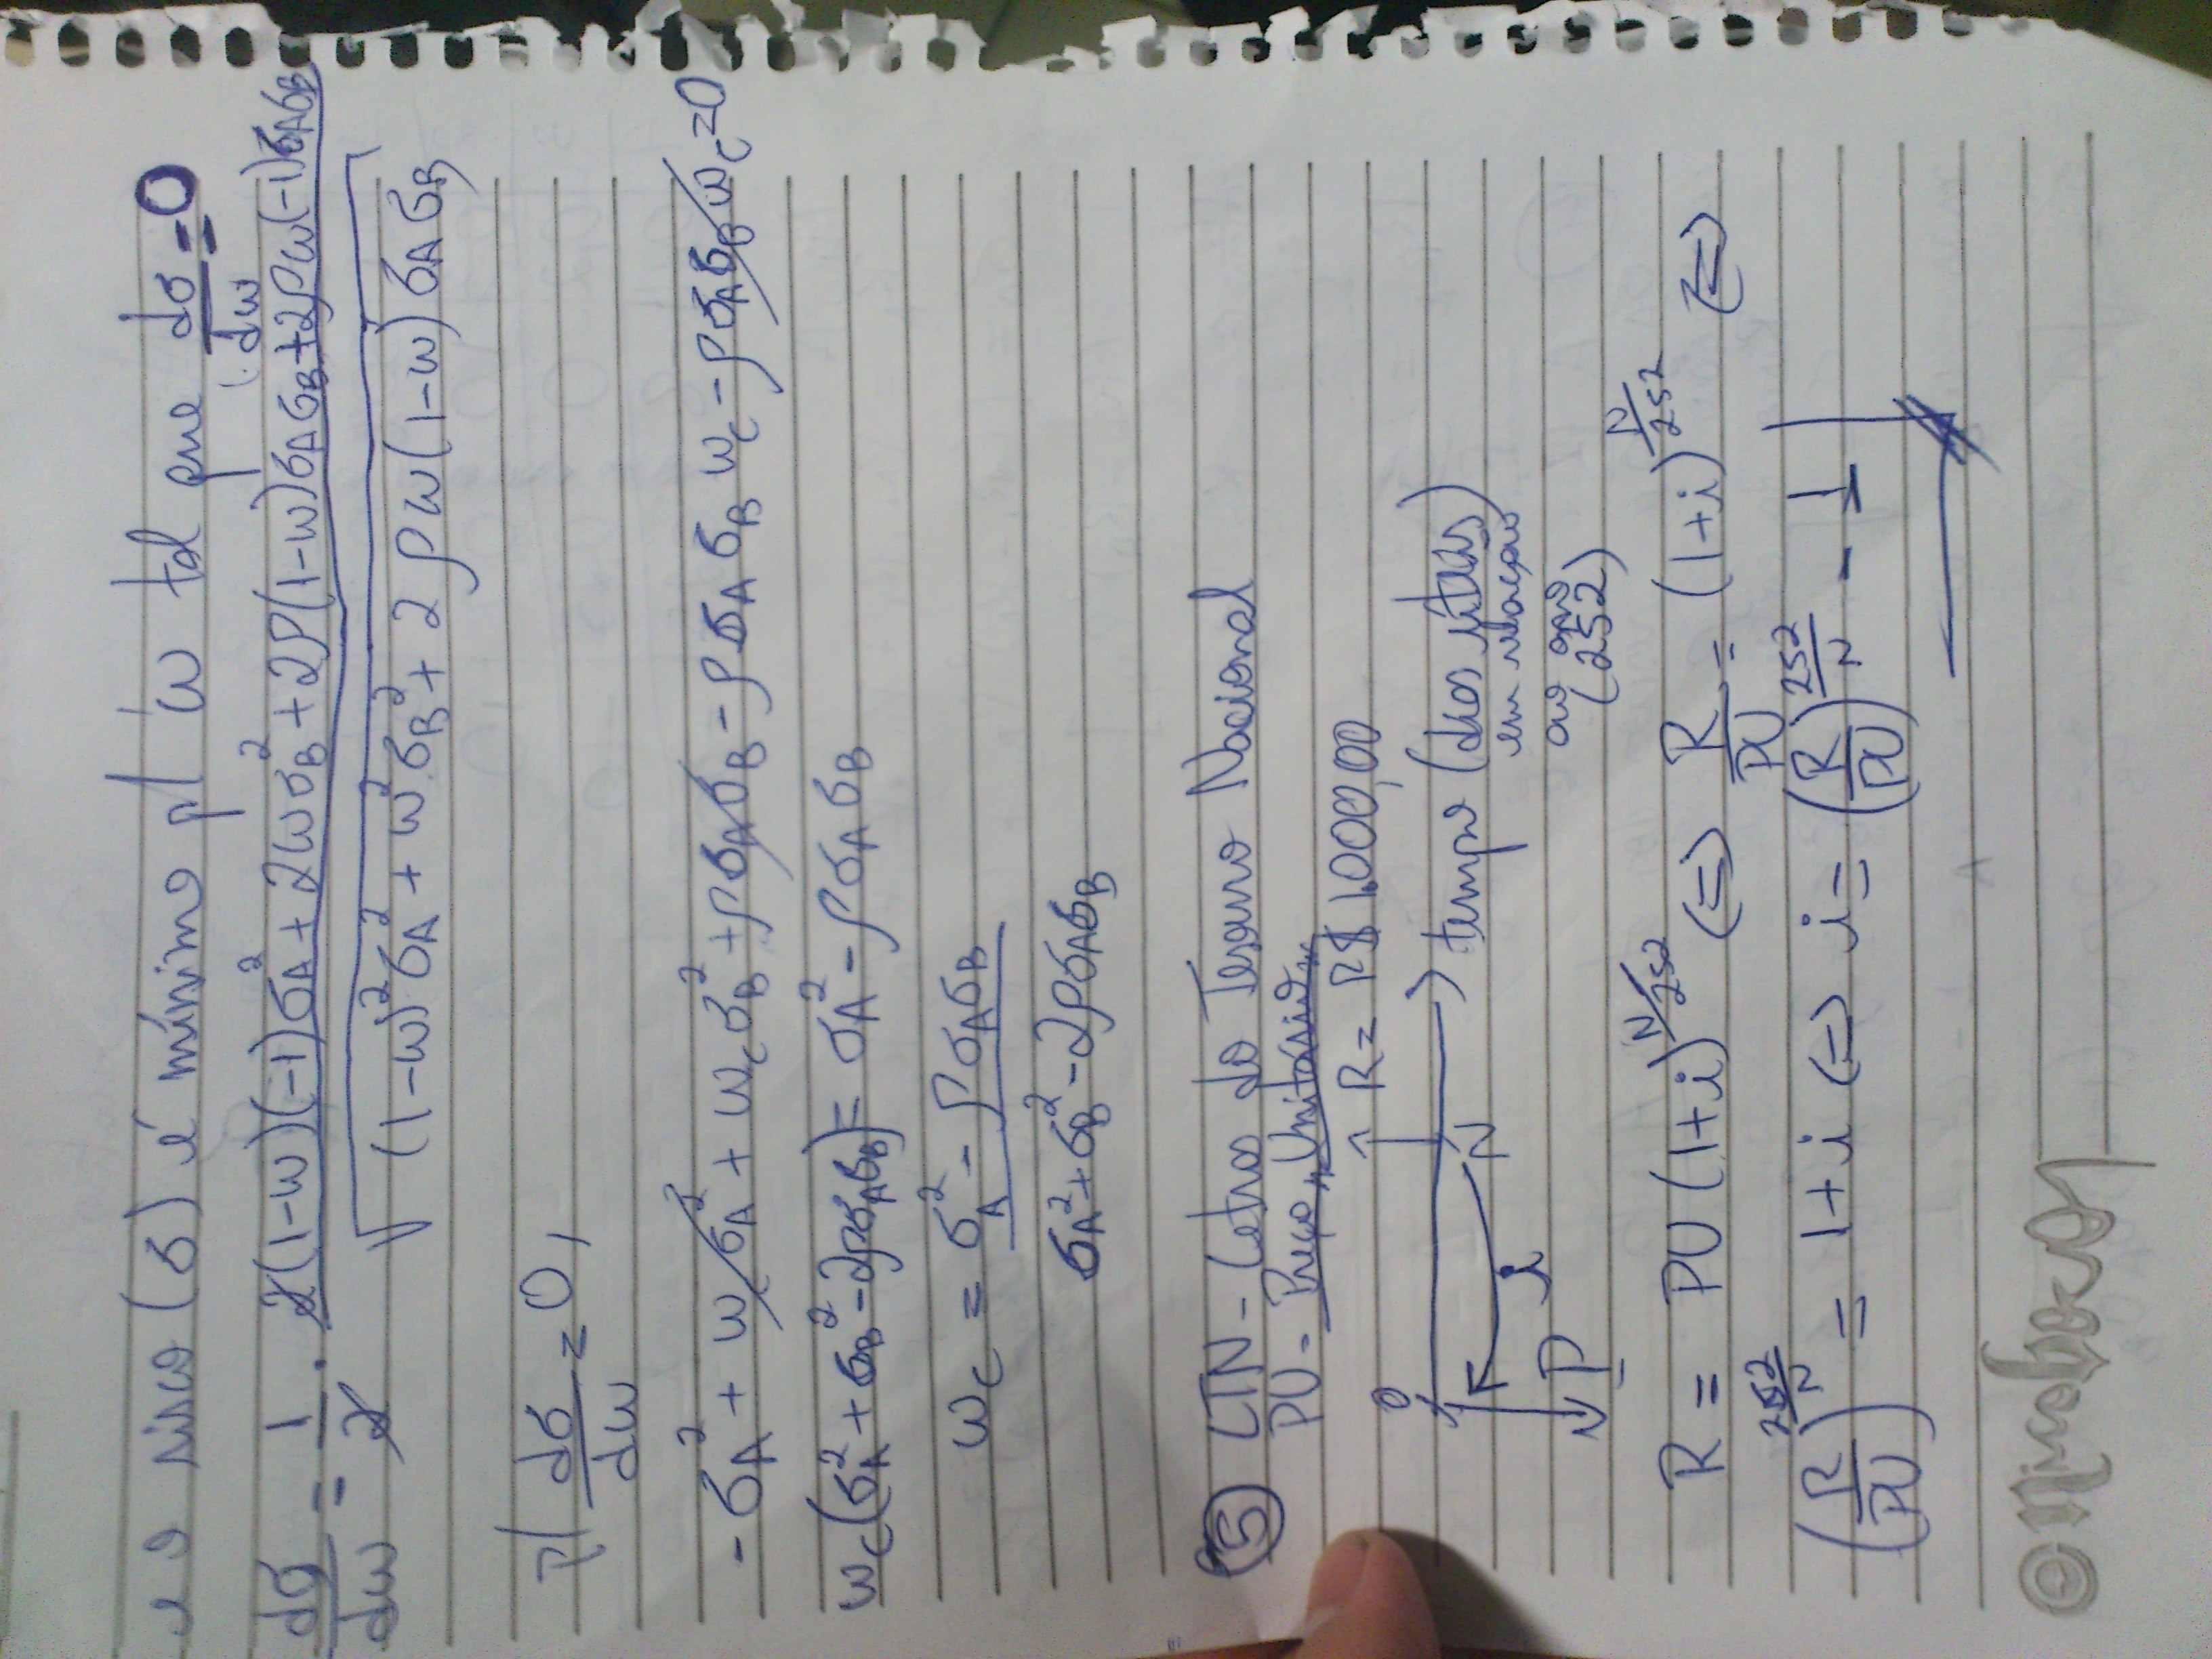 e o risco (σ) é mínimo p/ w tal que dσ/dw = 0
dσ/dw = 1/2 . 2(1-w)(-1)σA² + 2wσB² + 2ρ(1-w)σAσB + 2ρw(-1)σAσB
√(1-w)²σA² + w²σB² + 2ρw(1-w)σAσB
p/ dσ/dw = 0,
-σA² + wcσA² + wcσB² + ρσAσB - ρσAσB wc - ρσAσB wc = 0
wc(σA² + σB² - 2ρσAσB) = σA² - ρσAσB
wc = σA² - ρσAσB
σA² + σB² - 2ρσAσB
5 LTN - Letras do Tesouro Nacional
PU - Preço "Unitário"
R = R$ 1.000,00
0 N tempo (dias úteis)
em relação
i
ao ano
P (252)
R = PU (1+i)^N/252 (=) R/PU = (1+i)^N/252 (=)
(R/PU)^252/N = 1+i (=) i = (R/PU)^252/N - 1